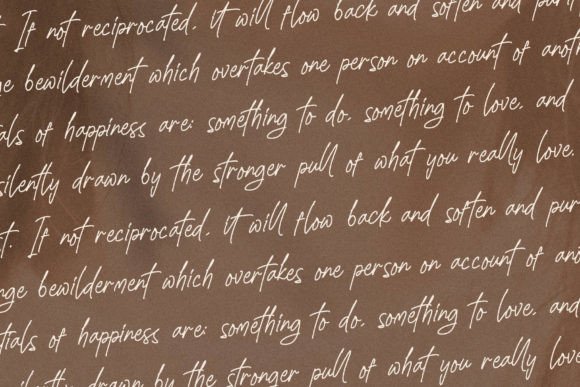 t. If not reciprocated, it will flow back and soften and puri
ge bewilderment which overtakes one person on account of anot
ials of happiness are: something to do, something to love, and
silently drawn by the stronger pull of what you really love.
t. If not reciprocated, it will flow back and soften and pur
nge bewilderment which overtakes one person on account of ano
tials of happiness are: something to do, something to love, and
silently drawn by the stronger pull of what you really love